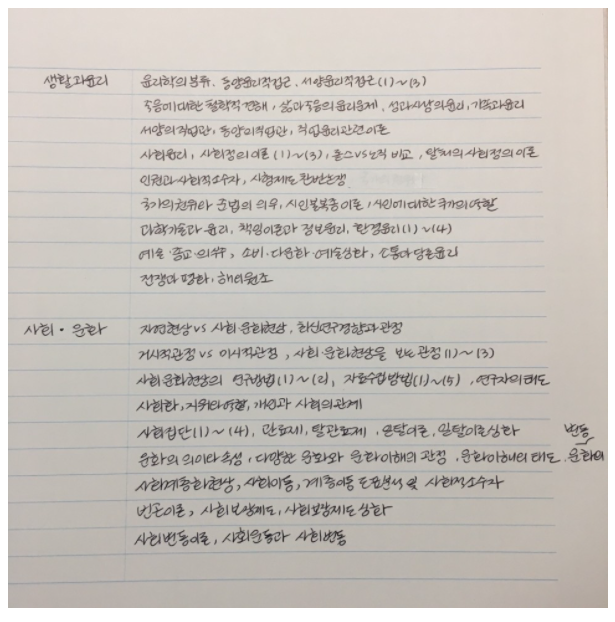 생활과윤리 윤리학의 분류, 동양윤리적접근, 서양윤리적접근(1)~(3)
죽음에 대한 철학적 견해, 삶과죽음의 윤리문제, 성과사랑의윤리, 가족과윤리
서양의 직업관, 동양의직업관, 직업윤리관련이론
사회윤리, 사회정의이론(1)~(3), 롤스vs노직 비교, 왈처의 사회정의 이론
인권과 사회적소수자, 사형제도 찬반논쟁
국가의권위와 준법의 의무, 시민불복종이론, 시민에대한 국가의역할
과학기술과 윤리, 책임이론과 정보윤리, 환경윤리(1)~(4)
예술·종교·의식주, 소비·다문화·예술심화, 소통과 담론윤리
전쟁과 평화, 해외원조
사회·문화 자연현상vs 사회·문화현상, 최신연구경향과 관점
거시적관점 vs 미시적관점, 사회·문화현상을 보는 관점(1)~(3)
사회문화현상의 연구방법(1)~(2), 자료수집방법(1)~(5), 연구자의태도
사회화, 지위와역할, 개인과 사회의관계
사회집단(1)~(4), 관료제, 탈관료제, 일탈이론, 일탈이론심화 변동
문화의 의미와속성, 다양한 문화와 문화이해의 관점, 문화이해의 태도, 문화의
사회계층화현상, 사회이동, 계층이동 도표분석 및 사회적소수자
빈곤이론, 사회보장제도, 사회보장제도심화
사회변동이론, 사회운동과 사회변동